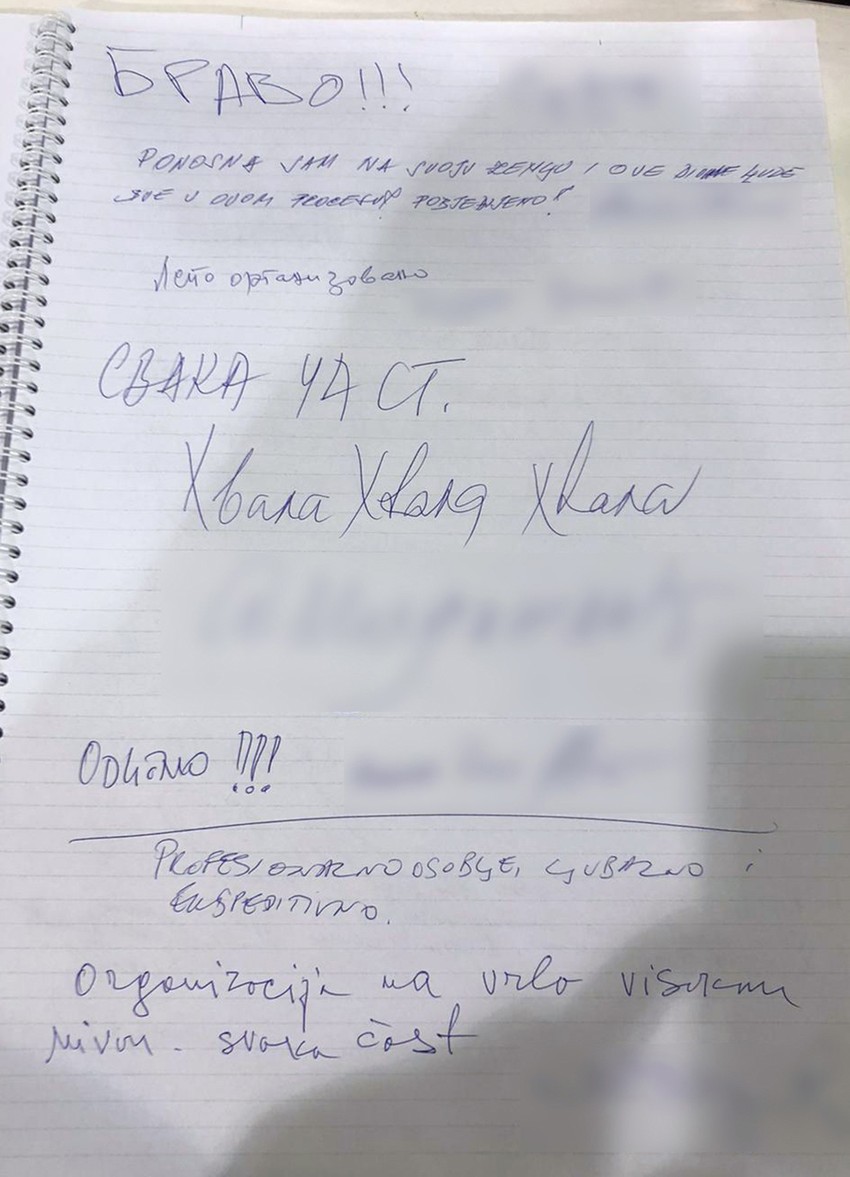 БРАВО!!!
PONOSNA SAM NA SVOJU ZEMLJU I OVE DIVNE LJUDE
SVE U OVOM PROCESU POBJEDJENO!
Лепо организовано
СВАКА ЧАСТ.
Хвала Хвала Хвала
ODLIČNO !!!!
PROFESIONALNO OSOBLJE, LJUBAZNO i
EKSPEDITIVNO.
Organizacija na vrlo visokom
nivou. svaka čast